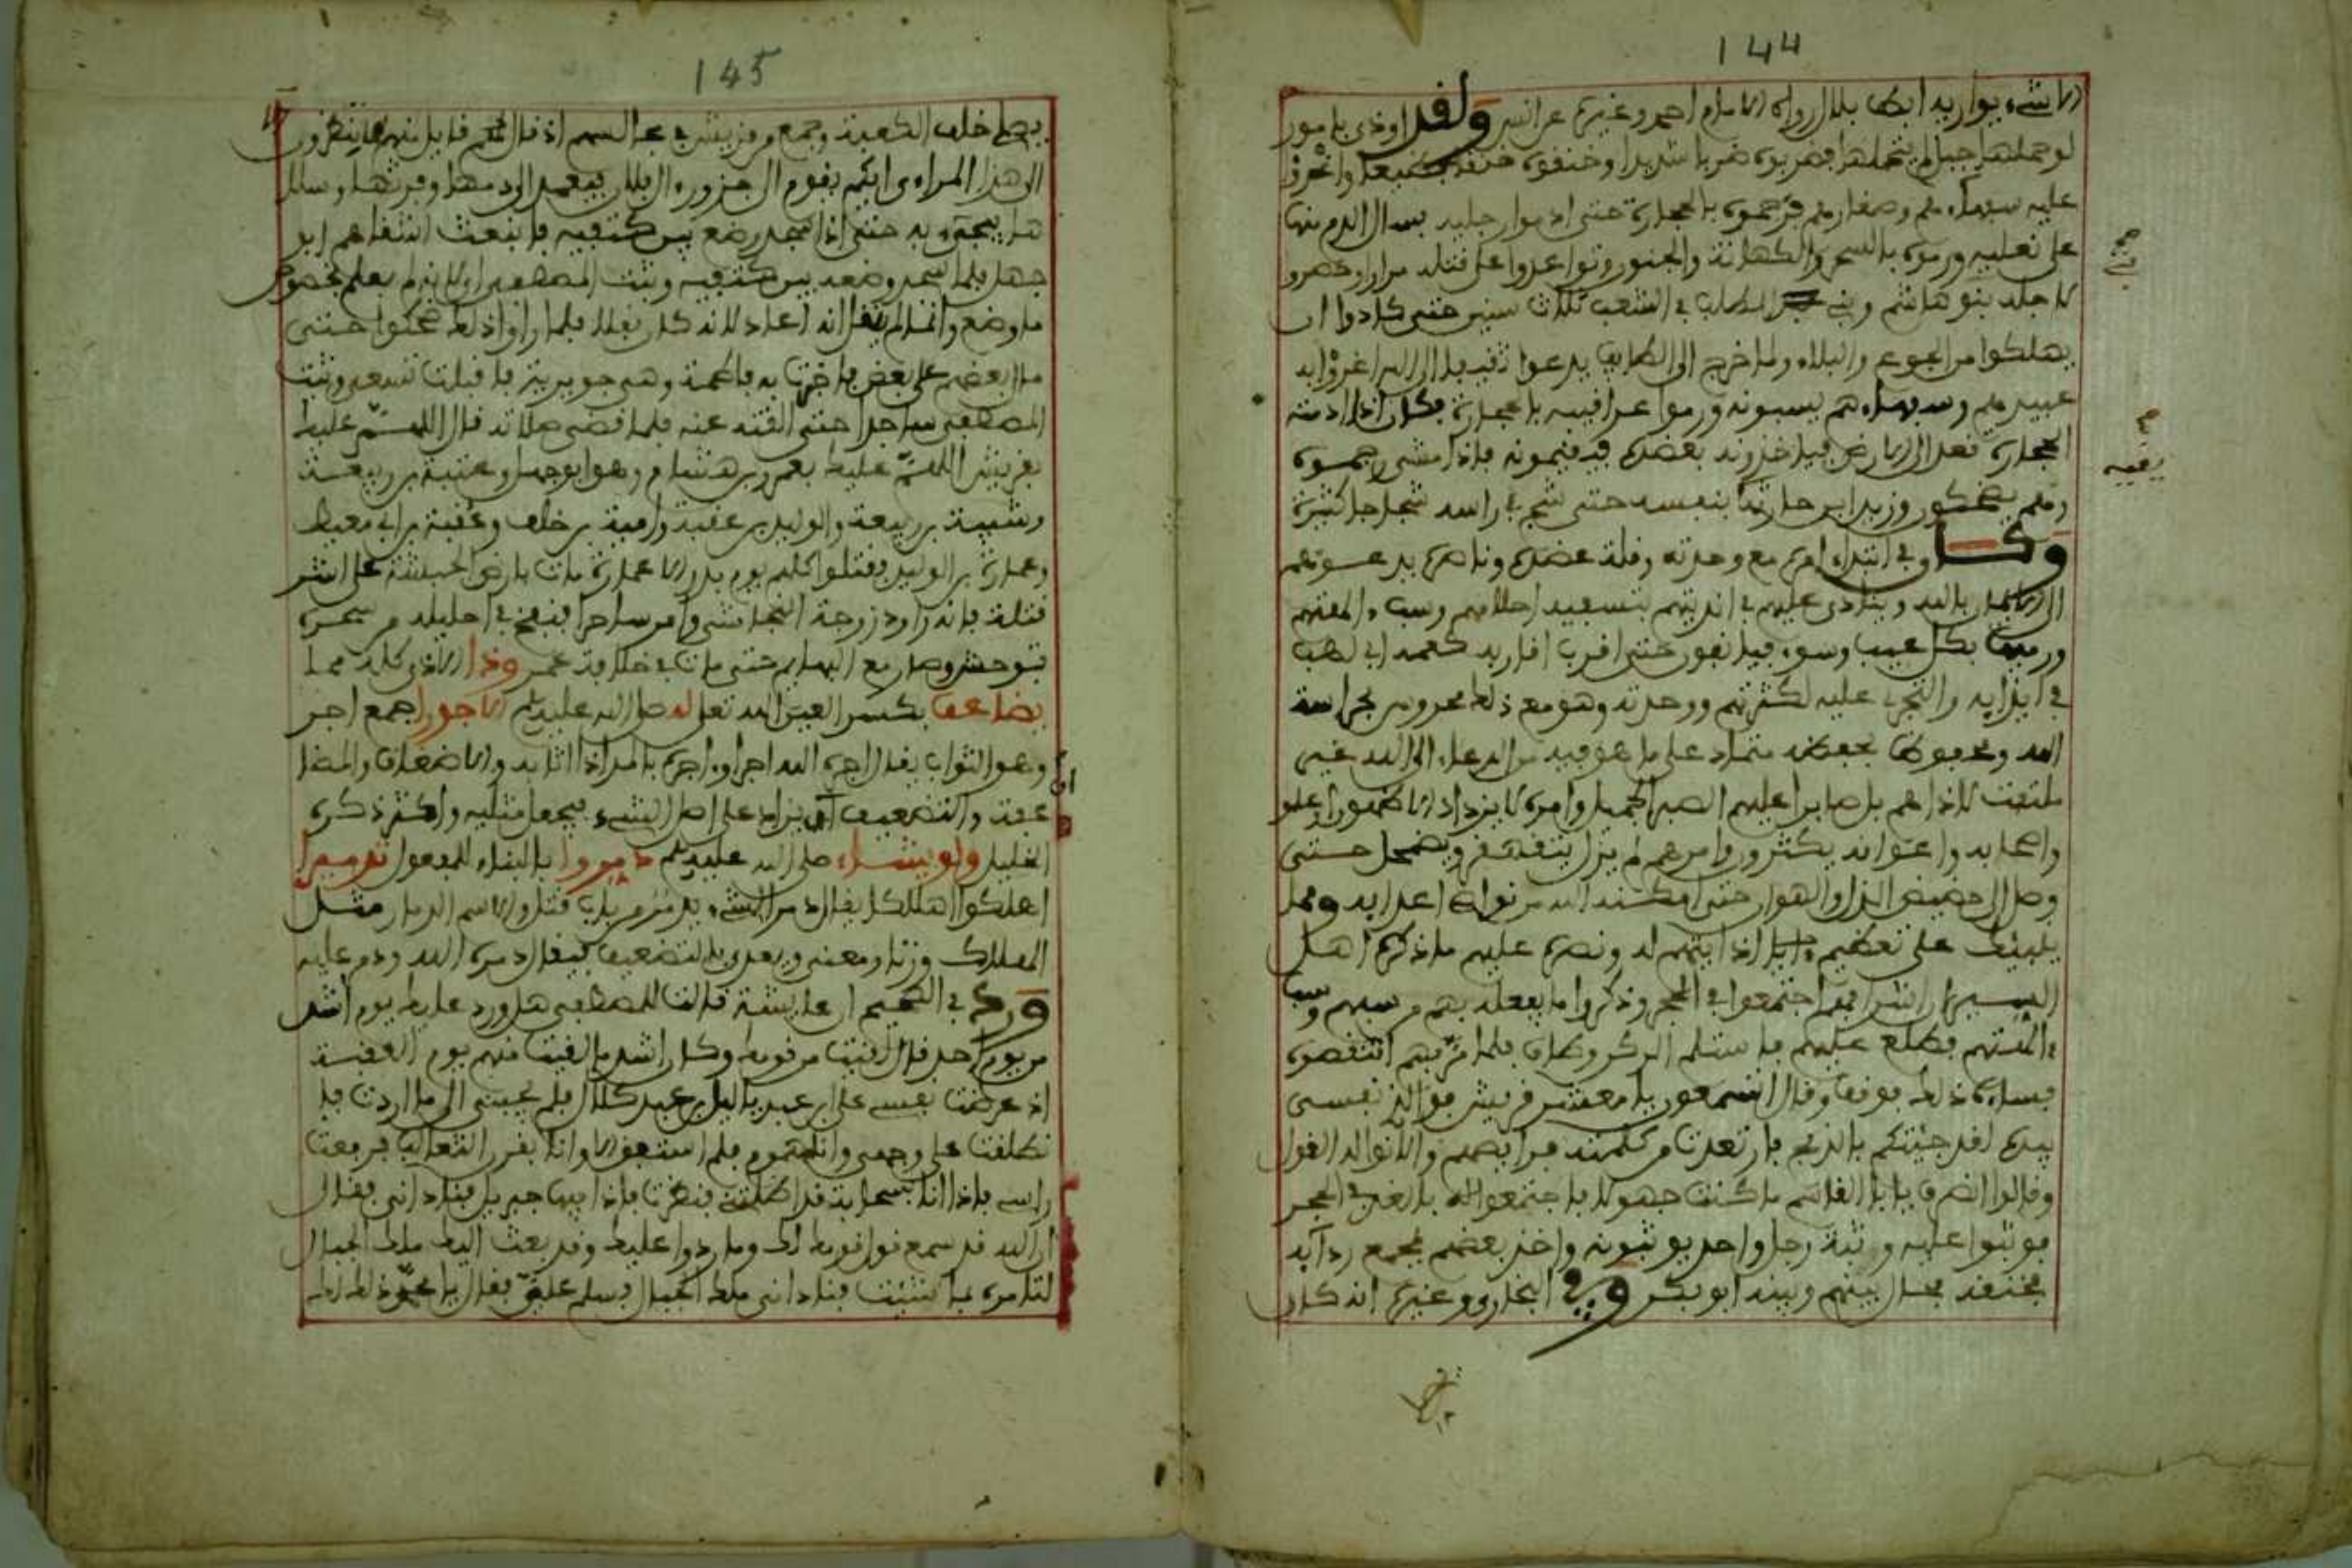 144
الا شيء يواريه ابط بلال رواه الامام احمد وغيره عن انس ولقد اوذي بامور
لو حملها جبل لم يتحملها فضربوه ضربا شديدا وخنقوه خنقا
عليه سفهاءهم وصغارهم فرجموه بالحجارة حتى ادموا رجليه بسال الدم منها
على نعليه ورموه بالسحر والكهانة والجنون وتواعدوا على قتله مرارا وحصروا
لاجله بنو هاشم وبني المطلب في الشعب ثلاث سنين حتى كادوا ان
يهلكوا من الجوع والبلاء ولما خرج الى الطايف يدعوا ثقيف الى الله اغروا به
عبيدهم وسفهاءهم يسبونه ورموا عراقيبه بالحجارة فكان اذا ادمته
الحجارة قعد الى الارض فياخذونه بعضده فيقيمونه فاذا مشى رجموه
وهم يضحكون وزيد ابن حارثة بنفسه حتى شج في راسه شجاجا كثيرة
وكان في ابتداء امره مع وحدته وقلة عضده وناصره يدعوهم
الى الايمان بالله وينادي عليهم في انديتهم بتسفيه احلامهم وسب الهتهم
ورميها بكل عيب وسوء فيانفون حتى اقرب اقاربه كعمه ابي لهب
في ايذايه والتجري عليه لكثرتهم ووحدته وهو مع ذلك محروس بحراسة
الله ومحفوظ بحفظه متماد على ما هو فيه من الدعاء الى الله غير
ملتفت لاذاهم بل صابرا عليهم الصبر الجميل وامره لا يزداد الا ظهورا وعلو
واصحابه واعوانه يكثرون وامرهم لم يزل يتقهقر ويضمحل حتى
وصل الى حضيض الذل والهوان حتى امكنه الله من نواصي اعدايه ومما
ينبئك على تعظيم اذايتهم له ونصره عليهم ما ذكره اهل
السير ان اشرافهم اجتمعوا في الحجر وذكروا ما يفعله بهم من سبهم وسب
الهتهم فطلع عليهم فاستلم الركن وطاف فلما مر بهم انتقصوه
فساءه ذلك فوقف وقال اتسمعون يا معشر قريش فوالذي نفسي
بيده لقد جئتكم بالذبح فارتعدت من كلمته فرايصهم والانوا له القول
وقالوا انصرف يا ابا القاسم ما كنت جهولا فاجتمعوا من الغد في الحجر
فوثبوا عليه وثبة رجل واحد يوثبونه واخذ بعضهم بمجمع ردآيه
فخنقه فحال بينهم وبينه ابو بكر وفي البخاري وغيره انه كان
145
يصلي خلف الكعبة وجمع من قريش في مجالسهم اذ قال لهم قايل منهم الا تنظرون
الى هذا المراءي ايكم يقوم الى جزور ال فلان فيعمد الى دمها وفرثها وسلا
ها فيجيء به حتى اذا سجد وضع بين كتفيه فانبعث اشقاهم ابو
جهل فلما سجد وضعه بين كتفيه وثبت المصطفى
ما وضع وانما لم ينقل انه اعاد لانه كان نفلا فلما راوا ذلك ضحكوا حتى
مال بعضهم على بعض فاخبرت به فاطمة وهي جويرية فاقبلت تسعى وثبت
المصطفى ساجدا حتى القته عنه فلما قضى صلاته قال اللهم عليك
بقريش اللهم عليك بعمرو بن هشام وهو ابو جهل وعتبة بن ربيعة
وشيبة بن ربيعة والوليد بن عقبة وامية بن خلف وعقبة بن ابي معيط
وعمارة بن الوليد فقتلوا كلهم يوم بدر الا عمارة مات بارض الحبشة على اشر
قتلة فانه راود زوجة النجاشي وامر ساحرا فنفخ في احليله من سحره
فتوحش وصار مع البهايم حتى مات في خلافة عمر وذا الاذى كله مما
يضاعف بكسر العين الله تعلى له صلى الله عليه وسلم الاجور جمع اجر
وهو الثواب يقال اجره الله اجرا واجره بالمد اذا اثابه والاضعاف والمضا
عفة والتضعيف ان يزاد على اصل الشيء فيجعل مثليه واكثر ذكره
الخليل ولو يشاء صلى الله عليه وسلم دمروا بالبناء للمفعول تدميرا
اهلكوا اهلاكا يقال دمر الشيء يدمر من باب قتل والاسم الدمار مثل
الهلاك وزنا ومعنى ويعدى بالتضعيف فيقال دمره الله ودمر عليه
ورد في الصحيح ان عايشة قالت للمصطفى هل ورد عليك يوم اشد
من يوم احد قال لقيت من قومك وكان اشد ما لقيت منهم يوم العقبة
اذ عرضت نفسي على ابن عبد ياليل بن عبد كلال فلم يجبني الى ما اردت فا
نطلقت على وجهي وانا مهموم فلم استفق الا وانا بقرن الثعالب فرفعت
راسي فاذا انا بسحابة قد اظلتني فنظرت فاذا فيها جبريل فناداني فقال
ان الله قد سمع قول قومك لك وما ردوا عليك وقد بعث اليك ملك الجبال
لتامره بما شئت فناداني ملك الجبال فسلم علي فقال يا محمد ذلك لك